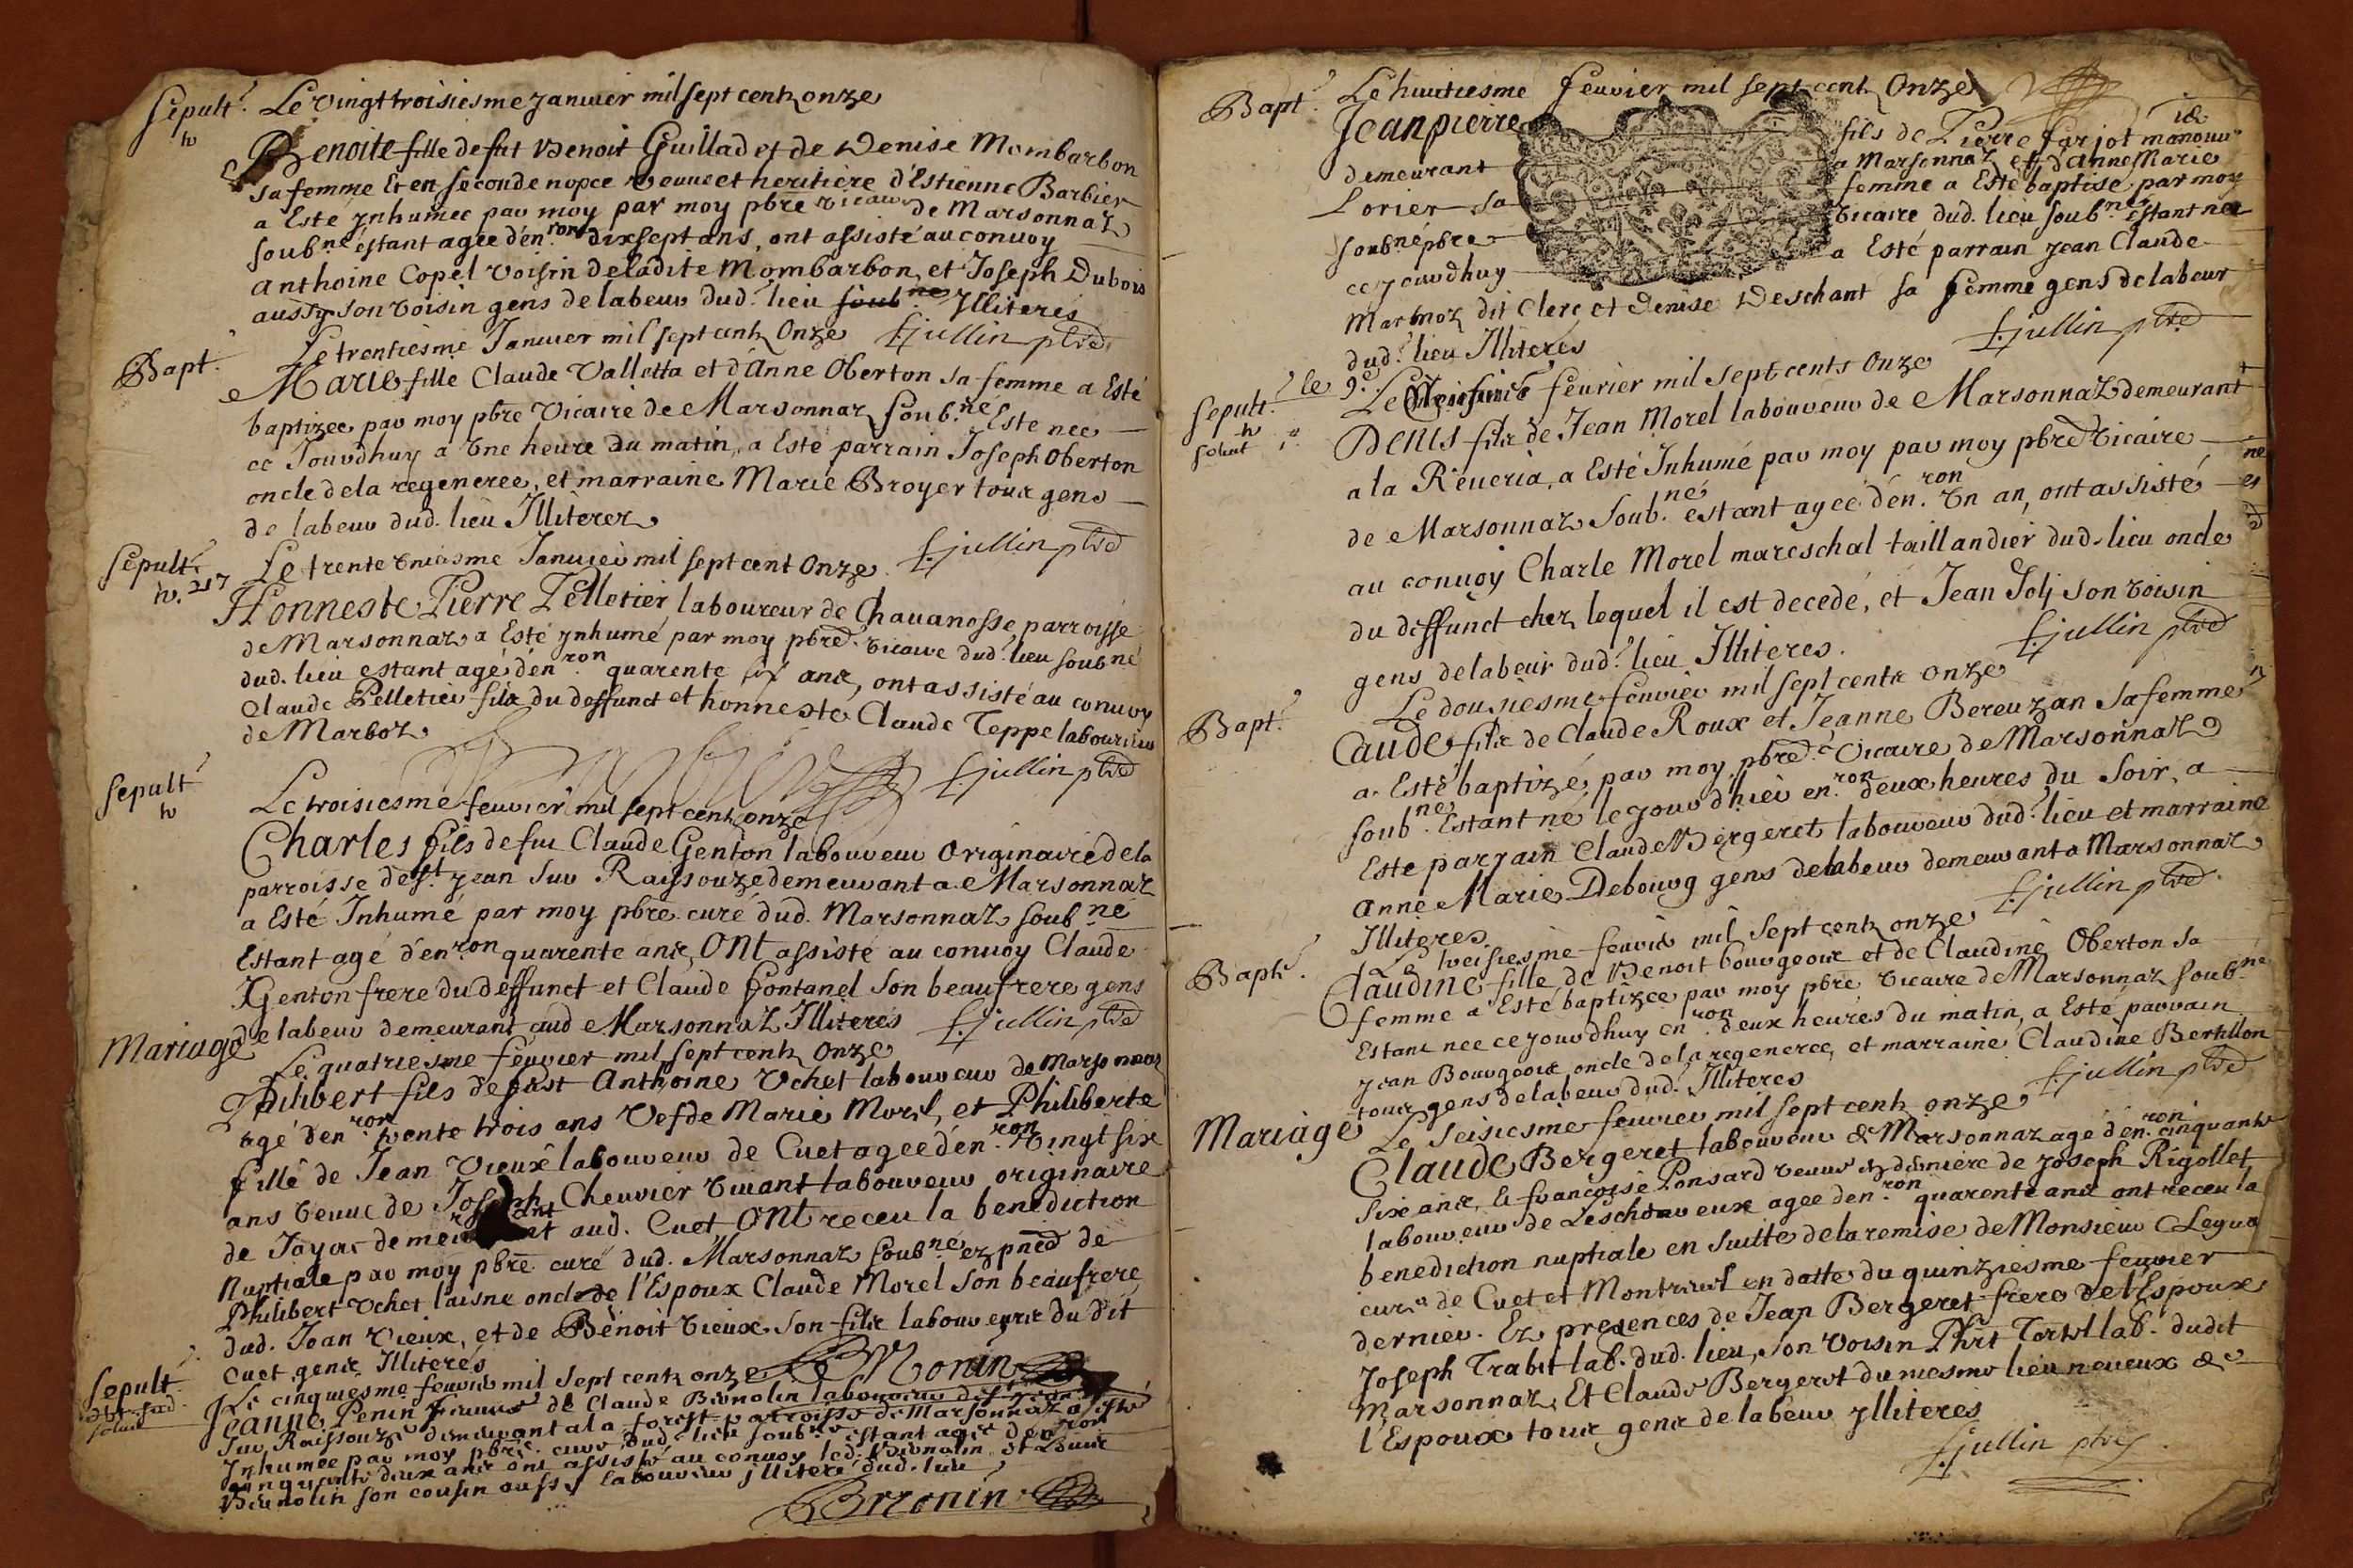 Sepult. Le vingt troisiesme janvier mil sept centz onze
Benoite fille de fut Benoit Guillad et de Denise Mombarbon
sa femme Et en seconde nopce veuve et heritiere d'Estienne Barbier
a Esté ynhumée par moy par moy pbre vicaire de Marsonnaz
soub.né estant agée d'en.ron dix sept ans, ont assisté au convoy
anthoine Copel voisin de ladite Mombarbon, et Joseph Dubois
aussy son voisin gens de labeur dud. lieu soub.ne Ylliterés
Bapt. Le trentiesme Janvier mil sept centz Onze f. jullin pbre
Marie fille Claude Valletta et d'Anne Oberton sa femme a Esté
baptizee par moy pbre Vicaire de Marsonnaz soub.né Este nee
ce Jourdhuy a Une heure du matin, a Esté parrain Joseph Oberton
oncle de la regeneree, et marraine Marie Broyer tous gens
de labeur dud. lieu Illiterez
f. jullin pbre
Sepult. Le trente Uniesme Janvier mil sept cent Onze
Honneste Pierre Pelletier laboureur de Chavanosse parroisse
de Marsonnaz a Esté ynhumé par moy pbre. vicaire dud. lieu soubné
dud. lieu estant agé d'en.ron quarente six ans, ont assisté au convoy
Claude Pelletier fils du deffunct et honneste Claude Teppe laboureur
de Marboz
f. jullin pbre
Sepult Le troisiesme fevrier mil sept centz onze
Charles fils de fu Claude Genton laboureur originaire de la
parroisse de st. jean sur Raissouze demeurant a Marsonnaz
a Esté Inhumé par moy pbre curé dud. Marsonnaz soub.né
Estant agé d'en.ron quarente ans, Ont assisté au convoy Claude
Genton frere du deffunct et Claude fontanel son beaufrere gens
de labeur demeurant aud Marsonnaz Illiterés f. jullin pbre
Mariage Le quatriesme fevrier mil sept centz Onze
Philibert fils de Anthoine Uchet laboureur de Marsonnaz
agé d'en.ron trente trois ans Vef de Marie Morel, et Philiberte
fille de Jean Vieux laboureur de Cuet agee d'en.ron vingt six
ans veuve de Joseph Cheuvier vivant laboureur originaire
de Jayac aud. Cuet Ont receu la benediction
Nuptiale par moy pbre curé dud. Marsonnaz soub.ne ez pnce de
Philibert Uchet l'aisne oncle de l'Espoux Claude Morel son beaufrere,
dud. Jean Vieux, et de Benoit Vieux son fils laboureurs du dit
Cuet gens Illiterés
Monin
Sepult. Le cinquiesme fevrier mil sept centz onze
Jeanne Penin femme de Claude Bernolin laboureur de st jean
sur Raissouze demeurant a la forest parroisse de Marsonnaz a Esté
Inhumée par moy pbre. curé dud. lieu soub.né estant agée d'en.ron
cinquante deux ans ont assisté au convoy led. Bernolin et
Bernolin son cousin aussy laboureur jlliteré dud. lieu
Monin
Bapt. Le huictiesme fevrier mil sept centz Onze
Jean pierre fils de Pierre farjot manouvr
demeurant a Marsonnaz et d'anne Marie
Lorier sa femme a Esté baptisé par moy
soubné pbre vicaire dud. lieu soub.né Estant nee
ce jourdhuy a Esté parrain jean Claude
Marmoz dit Clerc et Denise Deschant sa femme gens de labeur
dud. lieu Illiterés f. jullin pbre
Sepult. le 9e. fevrier mil sept cents Onze
Denis fils de Jean Morel laboureur de Marsonnaz demeurant
a la Reveria, a Esté Inhumé par moy par moy pbre vicaire
de Marsonnaz soub.né estant agee d'en.ron Un an, ont assisté
au convoy Charle Morel mareschal taillandier dud. lieu oncle
du deffunct chez lequel il est decedé, et Jean Joly son voisin
gens de labeur dud. lieu Illiteres. f. jullin pbre
Bapt. Le dousiesme fevrier mil sept centz onze
Caude fils de Claude Roux et Jeanne Bereuzan sa femme
a Esté baptizé par moy pbre Vicaire de Marsonnaz
soub.né Estant né le jour dhier en.ron deux heures du soir, a
Este parrain Claude Bergeret laboureur dud. lieu et marraine
anne Marie Debourg gens de labeur demeurant a Marsonnaz
Illiteres. f. jullin pbre
Bapt. Le treisiesme fevrier mil sept centz onze
Claudine fille de Benoit bourgeois et de Claudine Oberton sa
femme a Esté baptizee par moy pbre Vicaire de Marsonnaz soub.né
Estant nee ce jourdhuy en.ron deux heures du matin, a Esté parrain
jean Bourgeois oncle de la regeneree, et marraine Claudine Bertillon
tous gens de labeur dud. Illiteres f. jullin pbre
Mariage Le seisiesme fevrier mil sept centz onze
Claude Bergeret laboureur de Marsonnaz agé d'en.ron cinquante
six ans, Et francoise Ponsard veuve en derniere de joseph Rigollet
laboureur de Leschereux agee d'en.ron quarente ans ont receu la
benediction nuptiale en suitte de la remise de Monsieur
curé de Cuet et Montrevel en datte du quinziesme fevrier
dernier. Ez presences de Jean Bergeret frere de l'Espoux
Joseph Trabit lab. dud. lieu, son voisin Phrt lab. dudit
Marsonnaz, Et Claude Bergeret du mesme lieu neveux de
l'Espoux tous gens de labeur ylliteres
f. jullin pbre